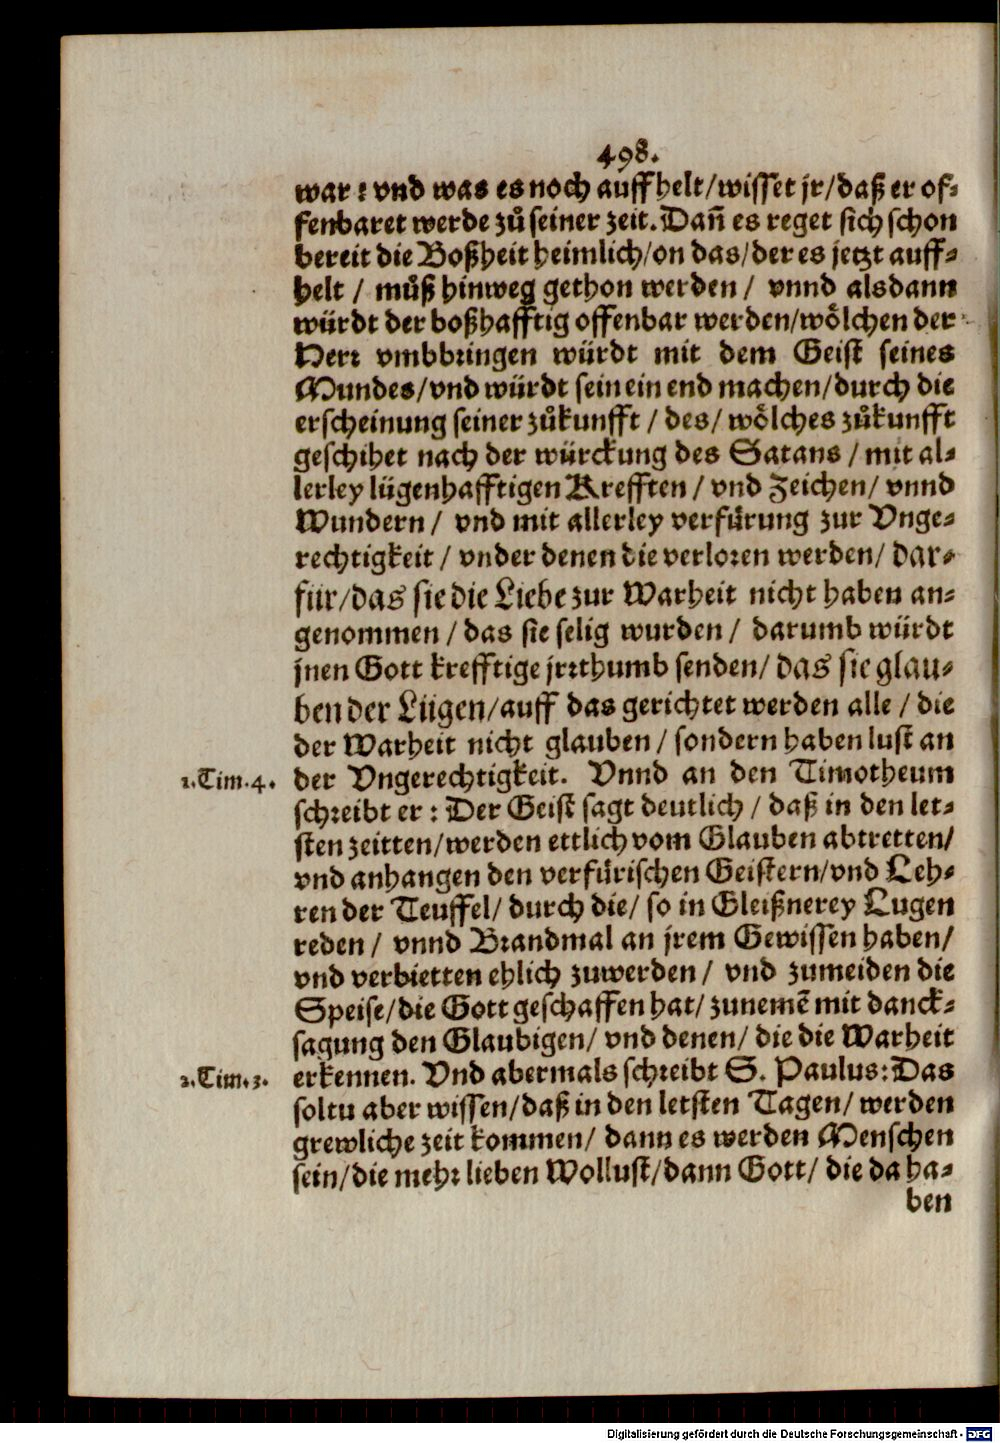 498.
war? vnd was es noch auffhelt/wisset jr/daß er of-
fenbaret werde zuͦ seiner zeit. Dañ es reget sich schon
bereit die Boßheit heimlich/on das/der es jetzt auff-
helt / muͦß hinweg gethon werden / vnnd alsdann
würdt der boßhafftig offenbar werden/woͤlchen der
Herr vmbbringen würdt mit dem Geist seines
Mundes/vnd würdt sein ein end machen/durch die
erscheinung seiner zuͦkunfft / des/ woͤlches zuͦkunfft
geschihet nach der würckung des Satans / mit al-
lerley lügenhafftigen Krefften / vnd Zeichen/ vnnd
Wundern / vnd mit allerley verfuͤrung zur Vnge-
rechtigkeit / vnder denen die verloren werden/ dar-
für/das sie die Liebe zur Warheit nicht haben an-
genommen / das sie selig wurden / darumb würdt
jnen Gott krefftige jrrthumb senden/ das sie glau-
ben der Lügen/auff das gerichtet werden alle / die
der Warheit nicht glauben / sondern haben lust an
1.Tim.4. der Vngerechtigkeit. Vnnd an den Timotheum
schreibt er : Der Geist sagt deutlich / daß in den let-
sten zeitten/werden ettlich vom Glauben abtretten/
vnd anhangen den verfuͤrischen Geistern/vnd Leh-
ren der Teuffel/ durch die/ so in Gleißnerey Lugen
reden / vnnd Brandmal an jrem Gewissen haben/
vnd verbietten ehlich zuwerden / vnd zumeiden die
Speise/die Gott geschaffen hat/ zunemẽ mit danck-
sagung den Glaubigen/ vnd denen/ die die Warheit
2.Tim.3. erkennen. Vnd abermals schreibt S. Paulus: Das
soltu aber wissen/daß in den letsten Tagen/ werden
grewliche zeit kommen/ dann es werden Menschen
sein/die mehr lieben Wollust/dann Gott/ die da ha-
ben
Digitalisierung gefördert durch die Deutsche Forschungsgemeinschaft - DFG